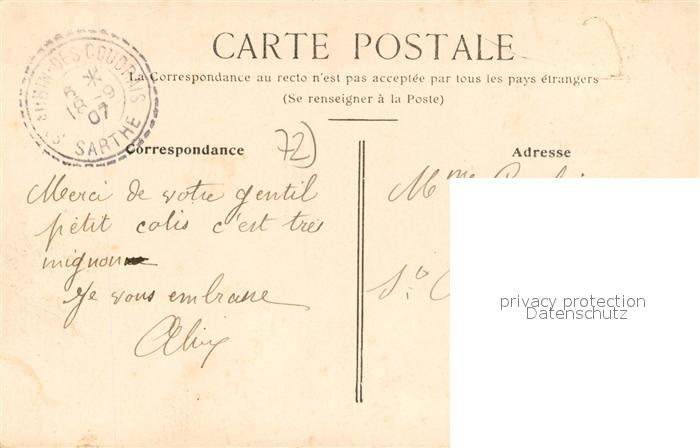 CARTE POSTALE
La Correspondance au recto n'est pas acceptée par tous les pays étrangers
(Se renseigner à la Poste)
ST AUBIN-DES-COUDRAIS
07
SARTHE
72)
Correspondance
Adresse
Merci de votre gentil
petit colis c'est très
mignon
Je vous embrasse
Mme
privacy protection
Datenschutz